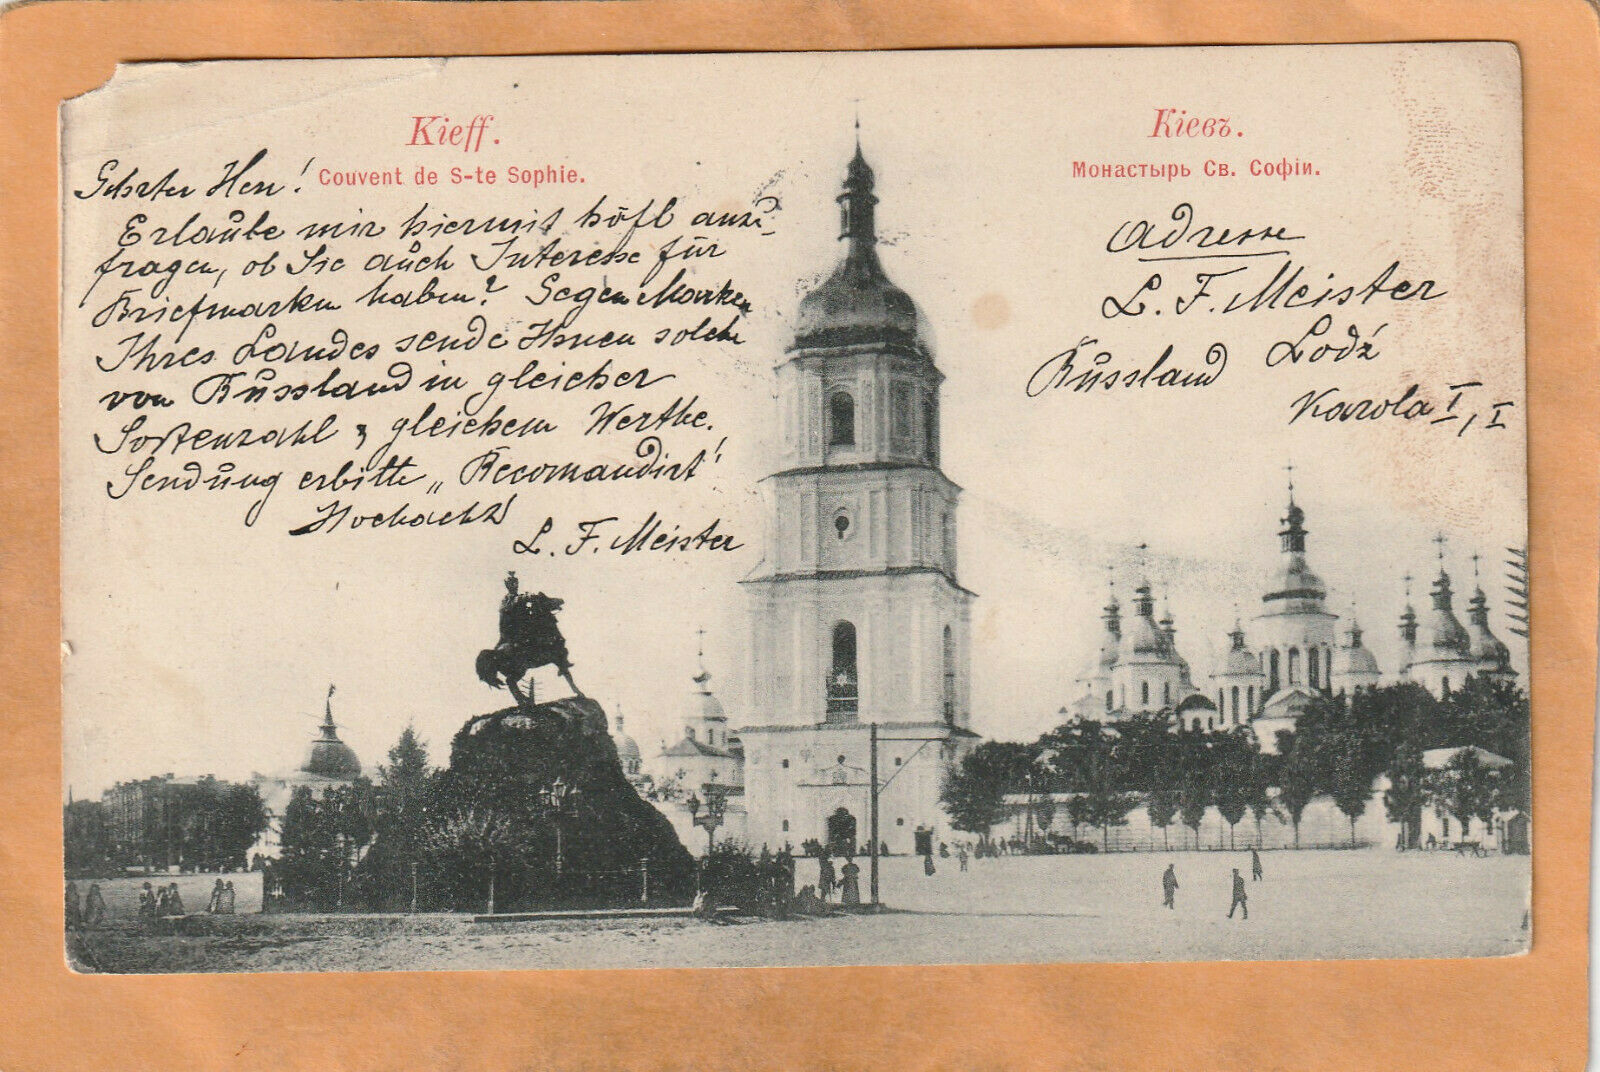 Kieff.
Couvent de S-te Sophie.
Geehrter Herr!
Erlaube mir hiermit höfl anzu-
fragen, ob Sie auch Interesse für
Briefmarken haben? Gegen Marken
Ihres Landes sende Ihnen solche
von Russland in gleicher
Sortenzahl & gleichem Werthe.
Sendung erbitte „Recomandirt!
Hochacht
L. F. Meister
Кіевъ.
Монастырь Св. Софіи.
Adresse
L. F. Meister
Lodź
Russland
Karola I, I